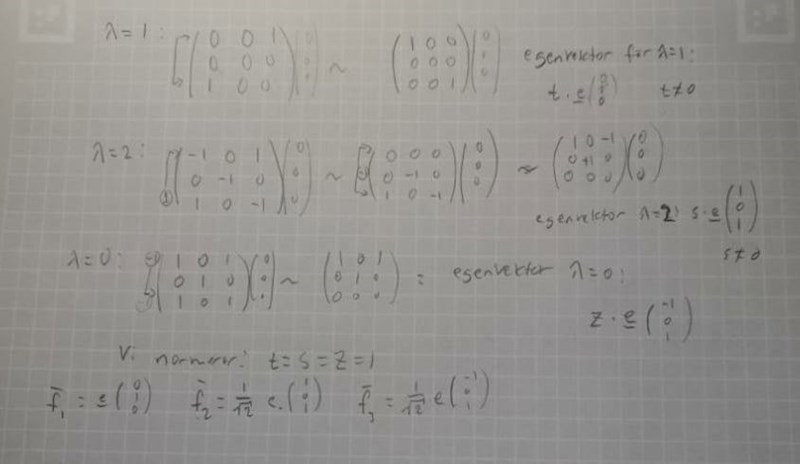 λ=1: (0 0 1 / 0 0 0 / 1 0 0)(0 / 0 / 0) ~ (1 0 0 / 0 0 0 / 0 0 1)(0 / 0 / 0) egenvektor för λ=1:
t · e(0 / 1 / 0) t≠0
λ=2: ① (-1 0 1 / 0 -1 0 / 1 0 -1)(0 / 0 / 0) ~ (0 0 0 / 0 -1 0 / 1 0 -1)(0 / 0 / 0) ~ (1 0 -1 / 0 +1 0 / 0 0 0)(0 / 0 / 0)
egenvektor λ=2: s · e(1 / 0 / 1)
s≠0
λ=0: (1 0 1 / 0 1 0 / 1 0 1)(0 / 0 / 0) ~ (1 0 1 / 0 1 0 / 0 0 0) : egenvektor λ=0:
z · e(-1 / 0 / 1)
Vi normerar: t=s=z=1
f̄₁ = e(0 / 1 / 0) f̄₂ = 1/√2 e.(1 / 0 / 1) f̄₃ = 1/√2 e(-1 / 0 / 1)